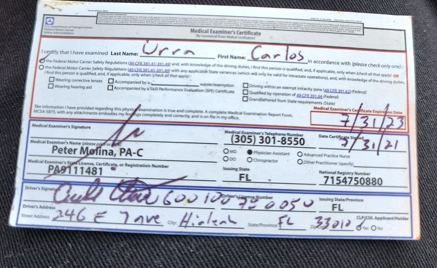 Medical Examiner's Certificate
(for Commercial Driver Medical Certification)
I certify that I have examined Last Name: Urra First Name: Carlos in accordance with (please check only one):
the Federal Motor Carrier Safety Regulations (49 CFR 391.41-391.49) and, with knowledge of the driving duties, I find this person is qualified, and, if applicable, only when (check all that apply) OR
the Federal Motor Carrier Safety Regulations (49 CFR 391.41-391.49) with any applicable State variances (which will only be valid for intrastate operations), and, with knowledge of the driving duties,
I find this person is qualified, and, if applicable, only when (check all that apply):
Wearing corrective lenses Accompanied by a waiver/exemption Driving within an exempt intracity zone (49 CFR 391.62) (Federal)
Wearing hearing aid Accompanied by a Skill Performance Evaluation (SPE) Certificate Qualified by operation of 49 CFR 391.64 (Federal)
Grandfathered from State requirements (State)
The information I have provided regarding this physical examination is true and complete. A complete Medical Examination Report Form,
MCSA-5875, with any attachments embodies my findings completely and correctly, and is on file in my office.
Medical Examiner's Certificate Expiration Date
7/31/23
Medical Examiner's Signature Medical Examiner's Telephone Number Date Certificate Signed
(305) 301-8550 7/31/21
Medical Examiner's Name (please print or type)
Peter Molina, PA-C
MD Physician Assistant Advanced Practice Nurse
DO Chiropractor Other Practitioner (specify)
Medical Examiner's State License, Certificate, or Registration Number Issuing State National Registry Number
PA9111481 FL 7154750880
Driver's Signature Driver's License Number Issuing State/Province
FL
Driver's Address
Street Address: 246 E 7 ave City: Hialeah State/Province: FL 33010
CLP/CDL Applicant/Holder
Yes No